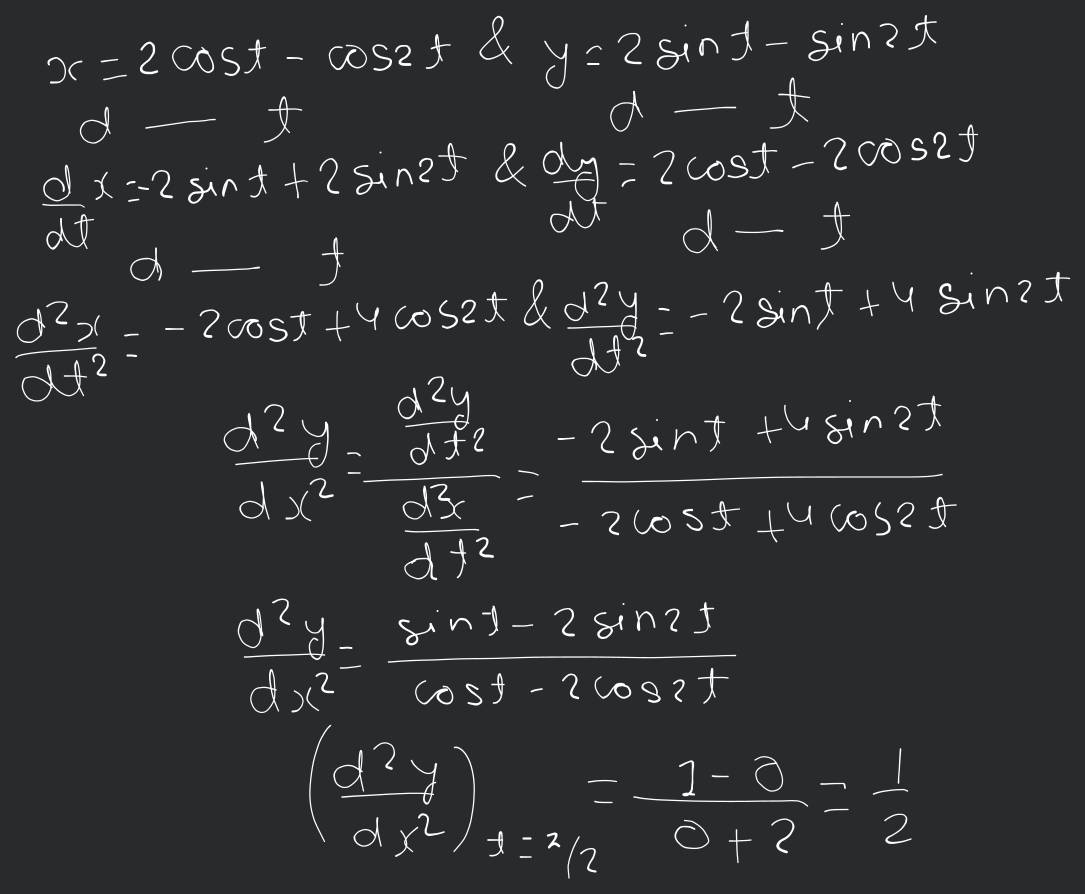 x = 2 cost - cos2t & y = 2 sint - sin2t
d — t d — t
d/dt x = -2 sint + 2 sin2t & dy/dt = 2 cost - 2 cos2t
d — t d — t
d²x/dt² = - 2 cost + 4 cos2t & d²y/dt² = - 2 sint + 4 sin2t
d²y/dx² = (d²y/dt²)/(d²x/dt²) = (- 2 sint + 4 sin2t)/(- 2 cost + 4 cos2t)
d²y/dx² = (sint - 2 sin2t)/(cost - 2 cos2t)
(d²y/dx²) t = /2 = (1 - 0)/(0 + 2) = 1/2